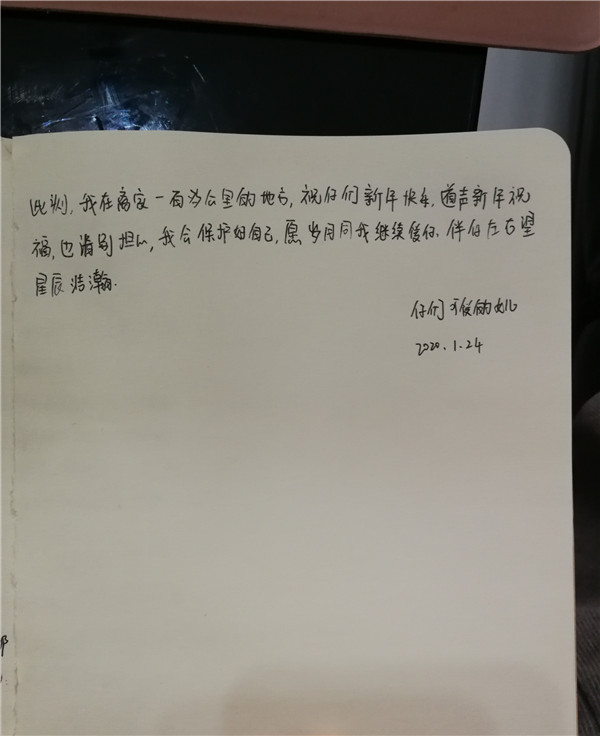 此刻, 我在离家一百多公里的地方, 祝仔们新年快乐, 道声新年祝
福, 也请别担心, 我会保护好自己, 愿岁月同我继续仔. 伴仔左右望
星辰浩瀚.
仔们的
2020.1.24